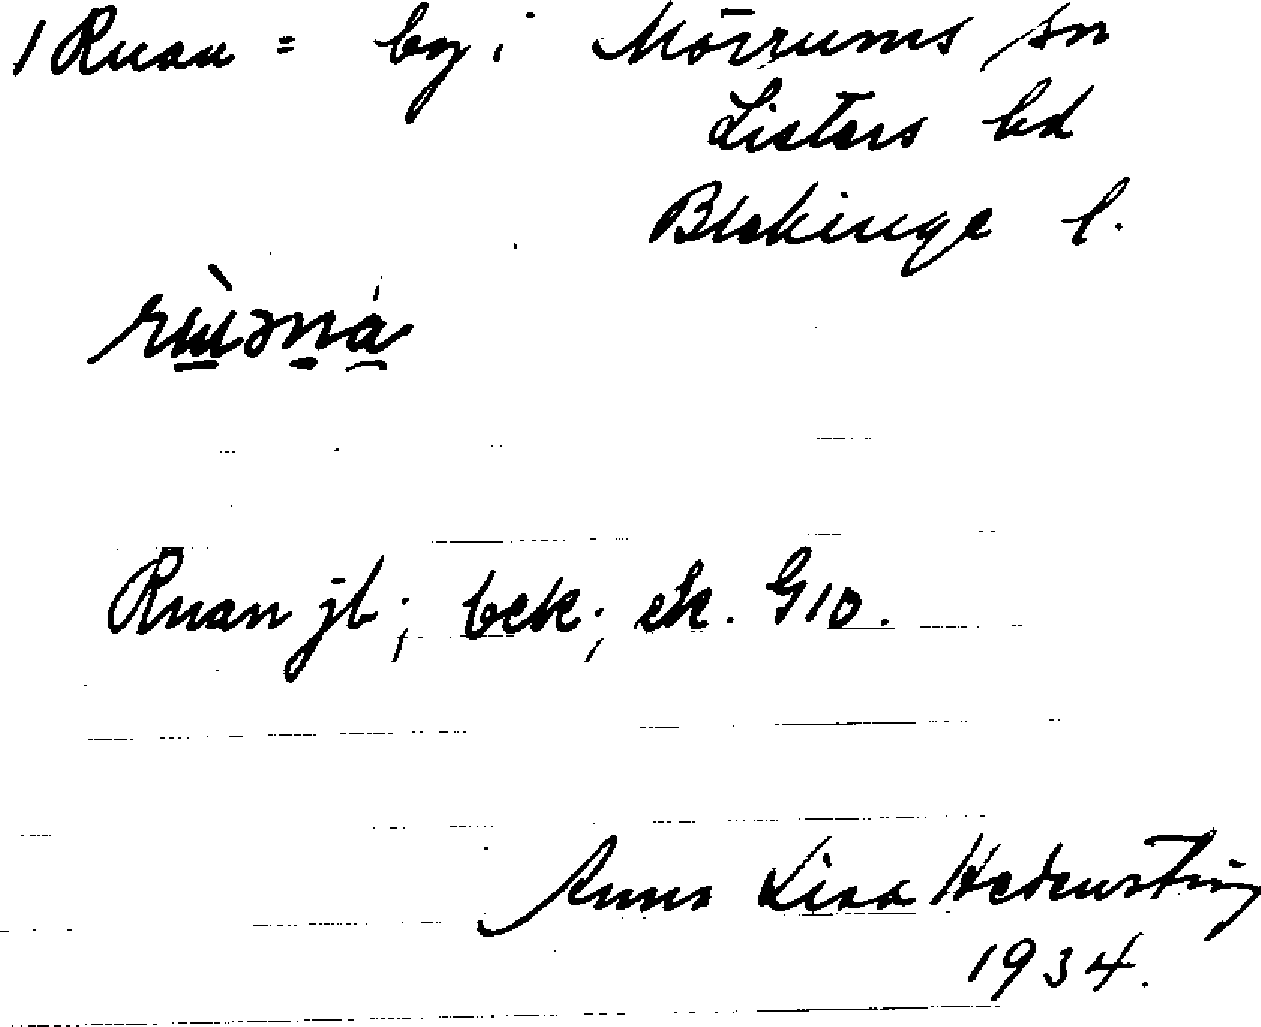 1 Ruan = by i Mörrums sn
Listers hd
Blekinge l.
Ruan jb; bek; ek. G10.
Anna Lisa
1934.